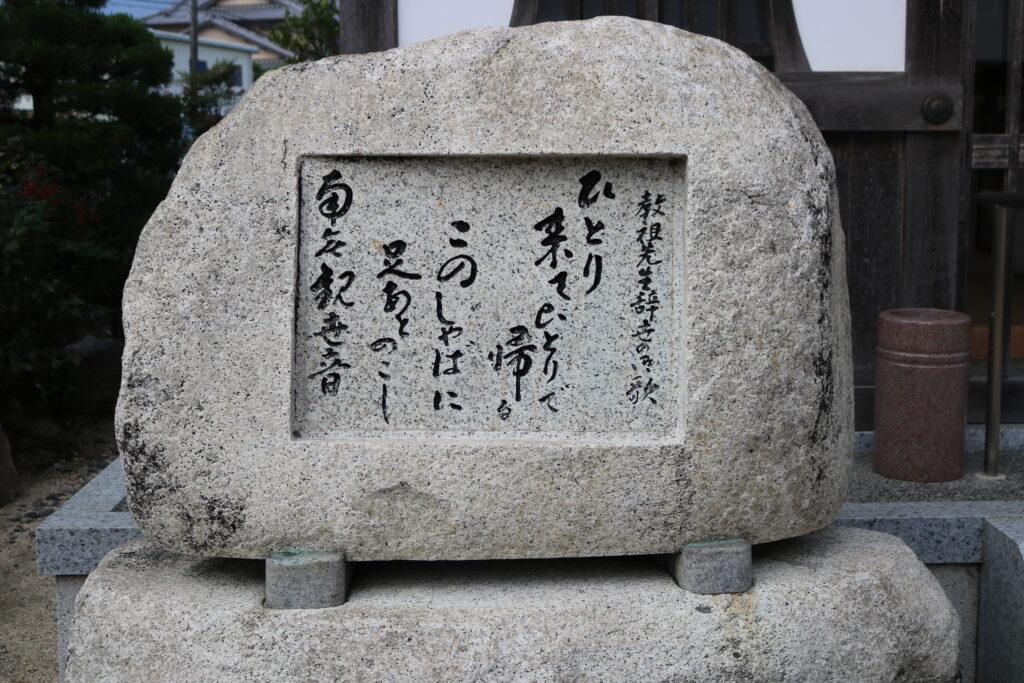 教祖先生辞世の御歌
ひとり
来てひとりで
帰る
このしゃばに
足あと
のこし
南無観世音